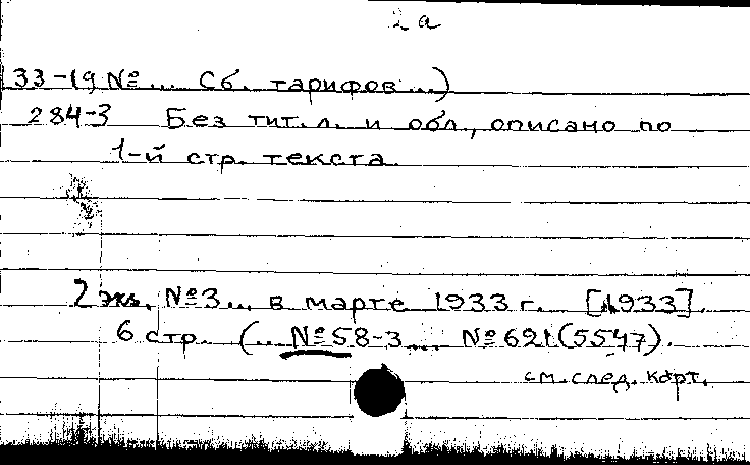 2а
33-19 № ... Сб. тарифов ...)
284-3 Без тит. л. и обл., описано по
1-й стр. текста.
2 экз. №3 ... в марте 1933 г. ... [1933].
6 стр. (... №58-3 ... №621 (5547).
см. след. карт.